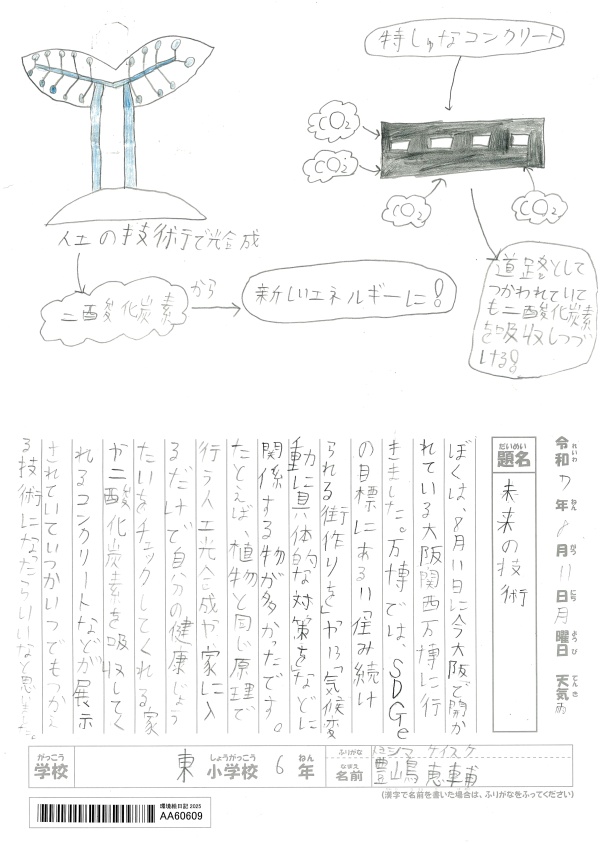 特しゅなコンクリート
CO₂
CO₂
CO₂
CO₂
人工の技術で光合成
二酸化炭素
から
新しいエネルギーに!
道路として
つかわれていて
も二酸化炭素
を吸収しつづ
ける!
令和7年8月11日月曜日 天気雨
れいわ ねん がつ にち ようび てんき
だいめい
題名
未来の技術
ぼくは、8月11日に今大阪で開か
れている大阪関西万博に行
きました。万博では、SDGe
の目標にある11「住み続け
られる街作りを」や13「気候変
動に具体的な対策を」などに
関係する物が多かったです。
たとえば、植物と同じ原理で
行う人工光合成や家に入
るだけで自分の健康じょう
たいをチェックしてくれる家
や二酸化炭素を吸収してく
れるコンクリートなどが展示
されていていつかいつでもつかえ
る技術になったらいいなと思いました。
がっこう
学校
東
しょうがっこう
小学校
6
ねん
年
ふりがな
シマ ケイスケ
なまえ
名前
豊嶋 恵輔
(漢字で名前を書いた場合は、ふりがなをふってください)
環境絵日記 2025
AA60609